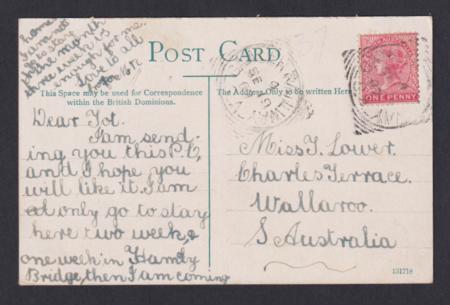 home
I am not
going to stay
the month
three weeks
enough for me.
love to all
POST CARD
This Space may be used for Correspondence
within the British Dominions.
The Address Only to be written Here.
ONE PENNY
Dear Tot.
I am send-
ing you this P.C,
and I hope you
will like it. I am
only going to stay
here two weeks,
one week in Hamly
Bridge, then I am coming
Miss I. Lower.
Charles Terrace.
Wallaroo.
S Australia
131718